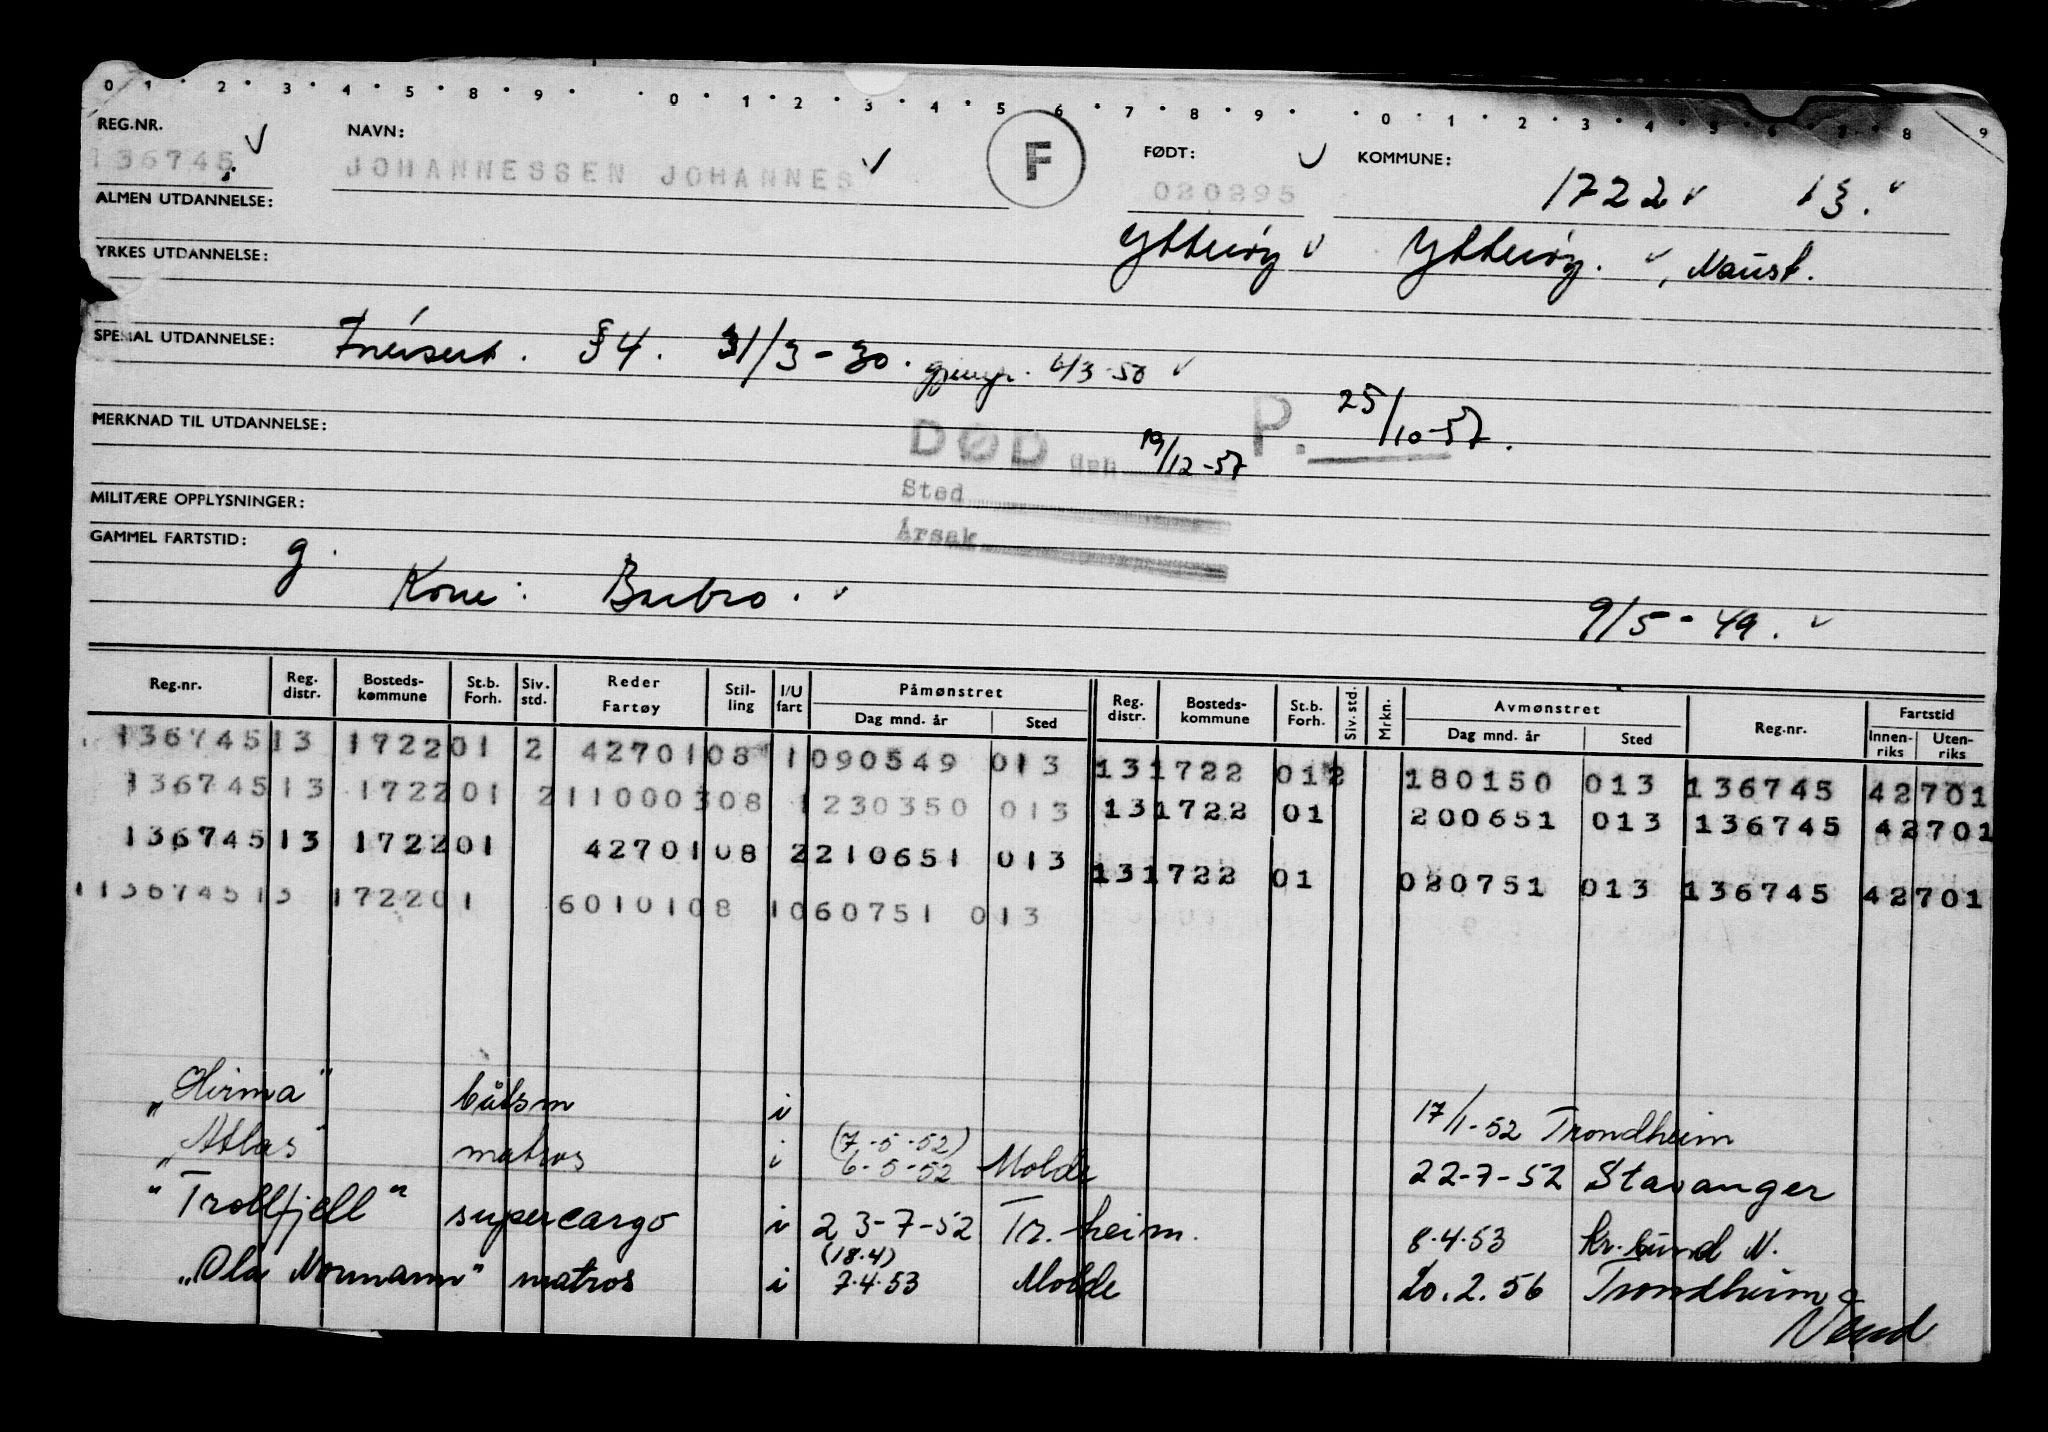 0 1 · 2 · 3 · 4 · 5 · 8 · 9 · · 0 · 1 · 2 · 3 · 4 · 5 · 6 · 7 · 8 · 9 · · 0 · 1 · 2 · 3 · 4 · 5 · 6 · 7 · 8 9
REG.NR. NAVN: F FØDT: KOMMUNE:
136745 JOHANNESSEN JOHANNES 020295 1722 13.
ALMEN UTDANNELSE:
Ytterøy Ytterøy.
YRKES UTDANNELSE:
SPESIAL UTDANNELSE: §4. 31/3-30. 6/3-50
P. 25/10-57.
MERKNAD TIL UTDANNELSE:
DØD den 19/12-57
Sted
MILITÆRE OPPLYSNINGER:
Årsak
GAMMEL FARTSTID: g.
Kone: Barbro. 9/5-49.
Reg.nr. Reg. distr. Bosteds-kommune St.b. Forh. Siv. std. Reder Fartøy Stil-ling I/U fart Påmønstret Dag mnd. år Sted Reg. distr. Bosteds-kommune St.b. Forh. Siv. std. Mrkn. Avmønstret Dag mnd. år Sted Reg.nr. Fartstid Innen-riks Uten-riks
136745 13 1722 01 2 42701 08 1 090549 013 13 1722 01 2 180150 013 136745 42701
136745 13 1722 01 2 110003 08 1 230350 013 13 1722 01 200651 013 136745 42701
136745 13 1722 01 42701 08 2 210651 013 13 1722 01 020751 013 136745 42701
1 136745 13 1722 01 60101 08 1 060751 013
„Hirma" båtsm i 17/1-52 Trondheim
„Atlas" matros i (7-5-52) 6-5-52 Molde 22-7-52 Stavanger
"Trollfjell" supercargo i 23-7-52 Tr.heim. 8.4.53 Kr.sund N.
„Ola Normann" matros i (18.4) 7.4.53 Molde 20.2.56 Trondheim
Vend